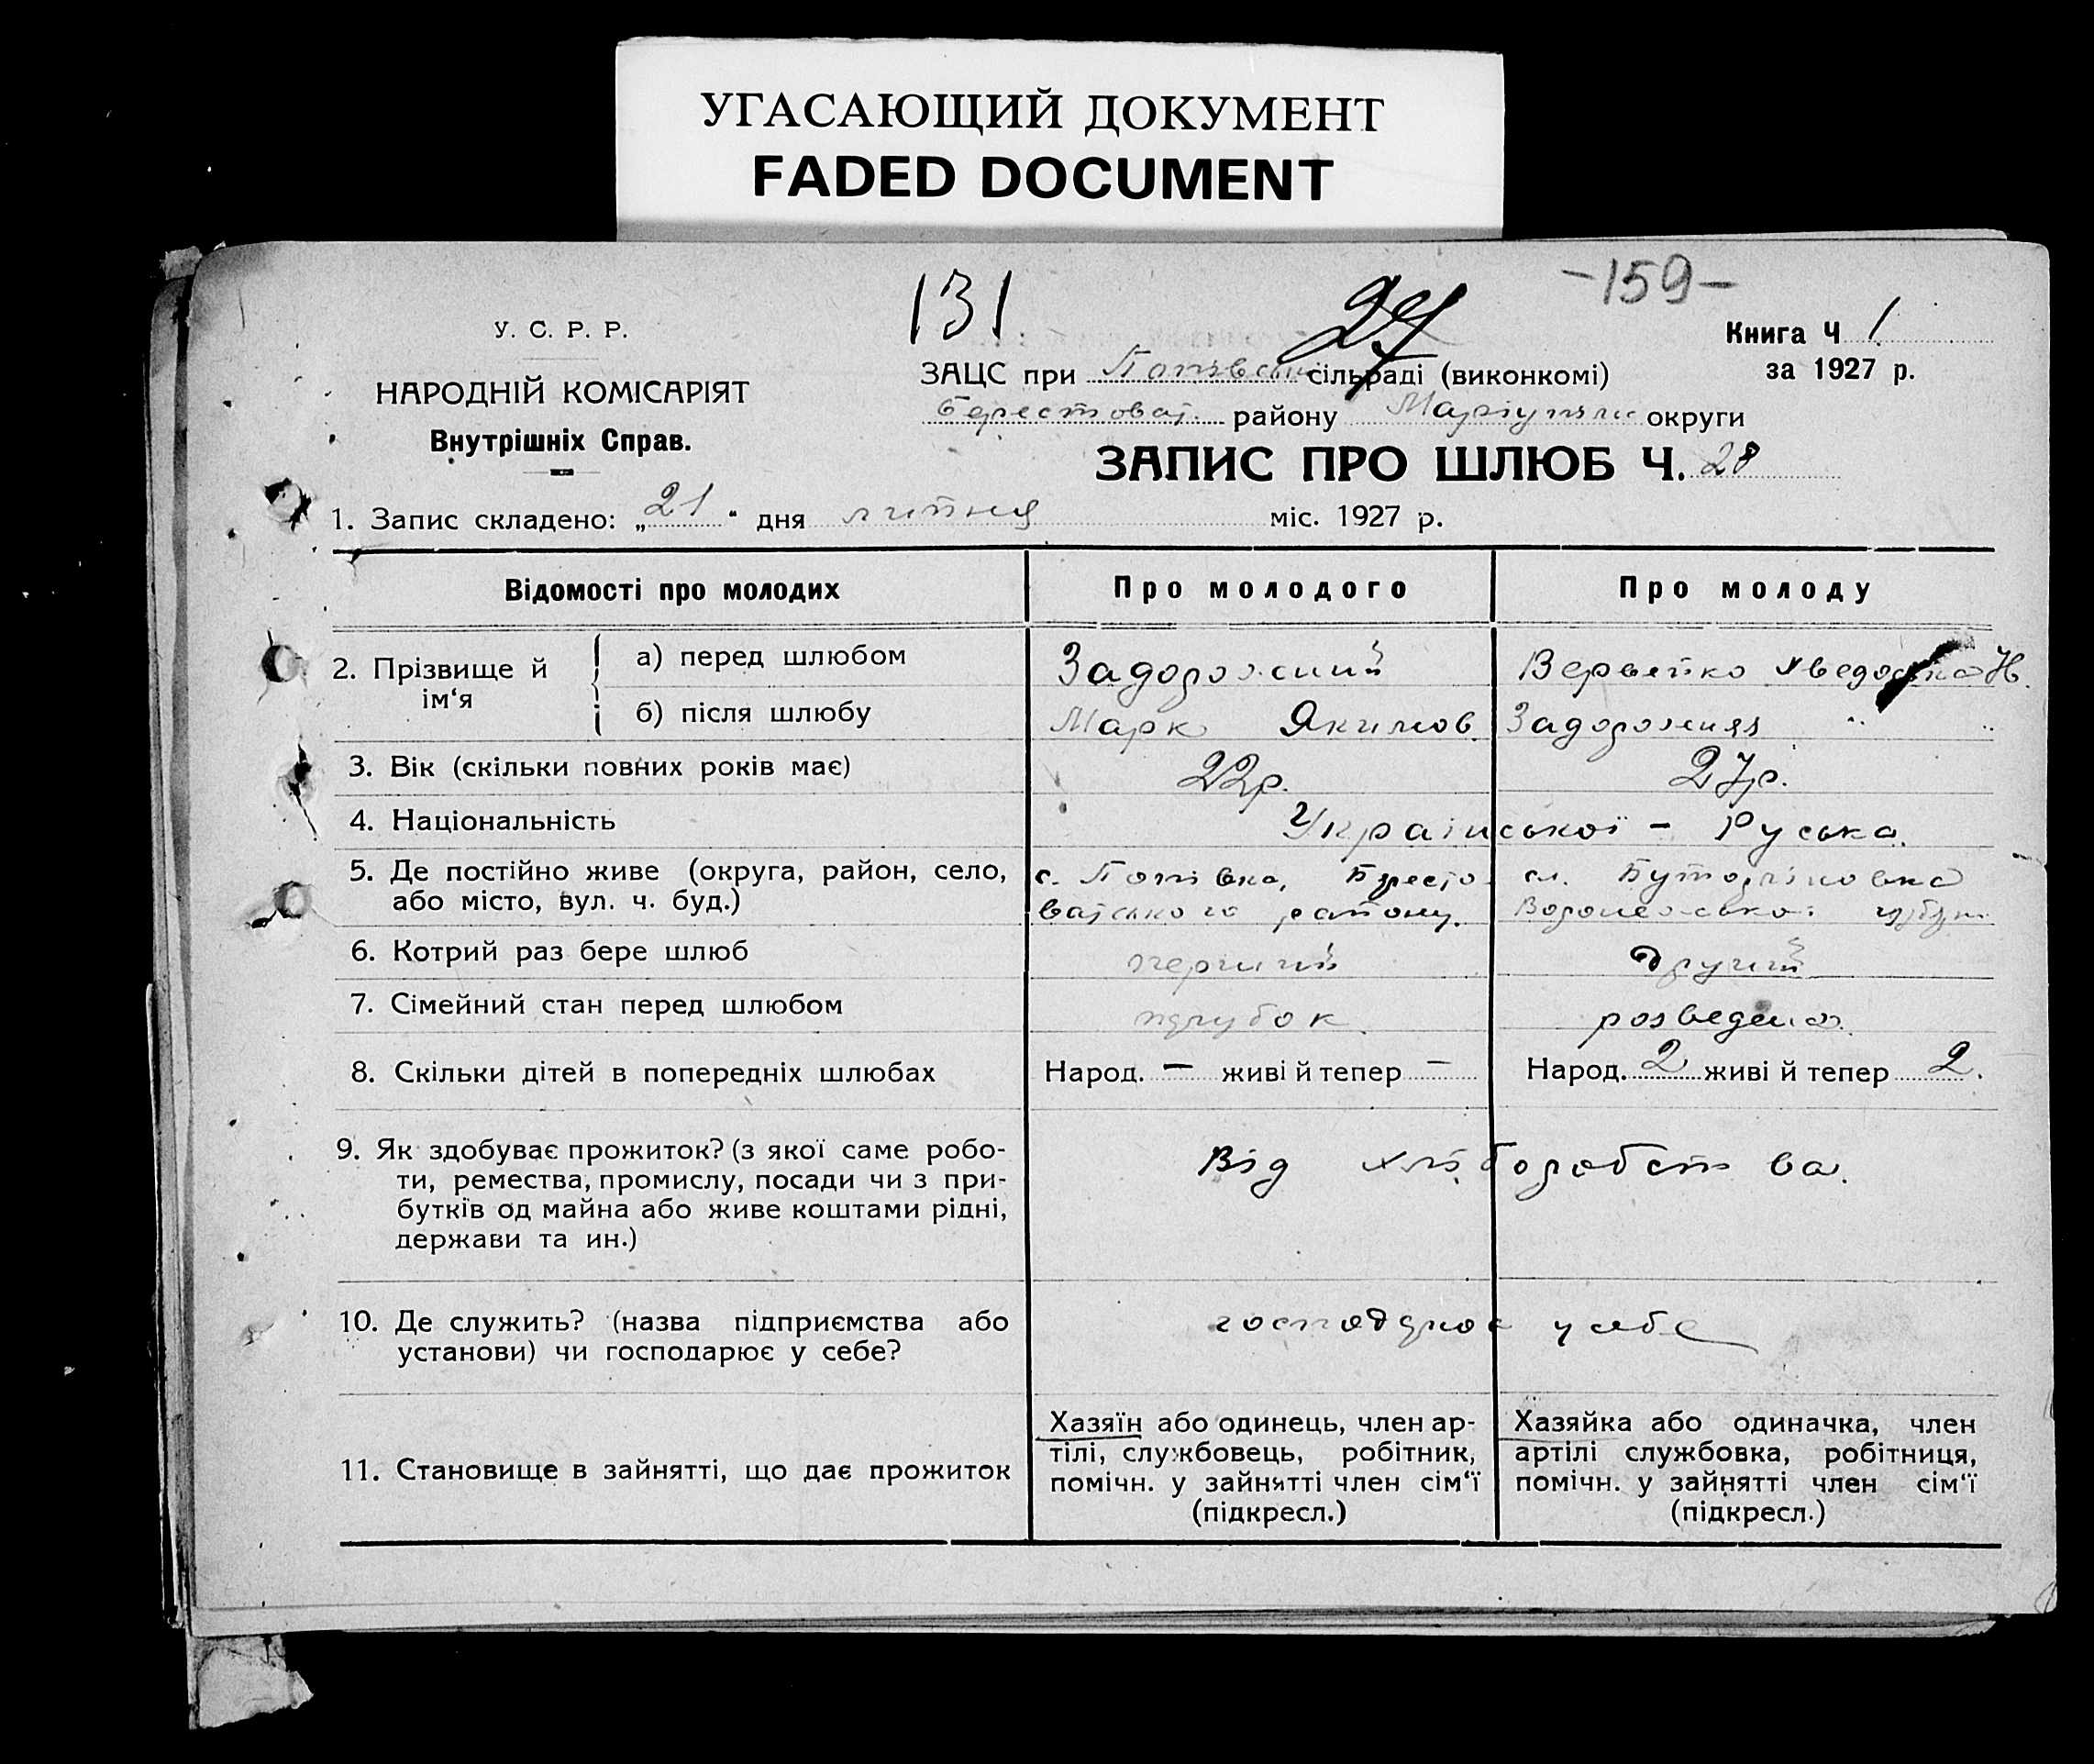 УГАСАЮЩИЙ ДОКУМЕНТ
FADED DOCUMENT
131
27
-159-
У. С. Р. Р.
НАРОДНІЙ КОМІСАРІЯТ
Внутрішніх Справ.
Книга Ч 1
за 1927 р.
ЗАЦС при Попівськ сільраді (виконкомі)
Берестоват. району Маріупільс округи
ЗАПИС ПРО ШЛЮБ Ч. 28
1. Запис складено: „21" дня липня міс. 1927 р.
Відомості про молодих
Про молодого
Про молоду
2. Прізвище й ім'я
а) перед шлюбом
Задорожний
Вервейко Хведоська Н.
б) після шлюбу
Марк Якимов.
Задорожняя " "
3. Вік (скільки повних років має)
22р.
27р.
4. Національність
Української - Руська.
5. Де постійно живе (округа, район, село,
або місто, вул. ч. буд.)
с. Попівка, Бересто-
ватського району.
сл.
6. Котрий раз бере шлюб
перший
другий
7. Сімейний стан перед шлюбом
парубок.
розведена.
8. Скільки дітей в попередніх шлюбах
Народ. — живі й тепер —
Народ. 2 живі й тепер 2.
9. Як здобуває прожиток? (з якої саме робо-
ти, ремества, промислу, посади чи з при-
бутків од майна або живе коштами рідні,
держави та ин.)
Від хліборобства.
10. Де служить? (назва підприємства або
установи) чи господарює у себе?
господарює у себе
11. Становище в зайнятті, що дає прожиток
Хазяїн або одинець, член ар-
тілі, службовець, робітник,
помічн. у зайнятті член сім'ї
(підкресл.)
Хазяйка або одиначка, член
артілі службовка, робітниця,
помічн. у зайнятті член сім'ї
(підкресл.)